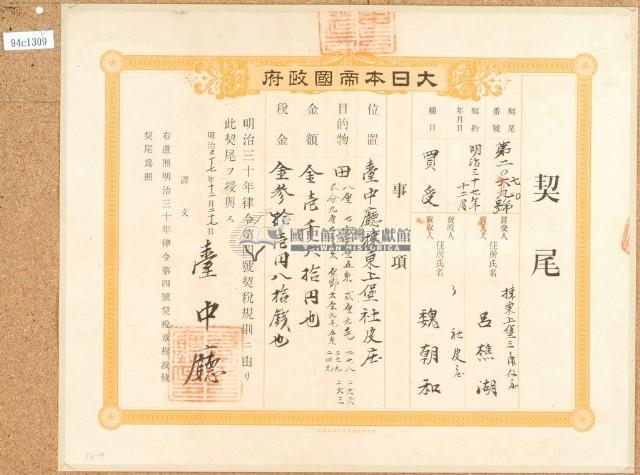 94c1309
大日本帝國政府
契尾
契尾番號
第二〇六九號
契約年月日
明治三十七年十二月
種目
買受
買受人
住所氏名
揀東上堡三角仔庄
呂樵湖
賣渡人
住所氏名
社皮庄
魏朝和
事項
位置
臺中廳揀東上堡社皮庄
目的物
田
金額
金壹千六拾円也
稅金
金參拾壹円八拾錢也
明治三十年律令第四號契稅規則ニ由リ
此契尾ヲ授與ス
明治三十七年十二月二十七日
臺中廳
譯文
右遵照明治三十年律令第四號契稅章程發給
契尾爲照
國史館臺灣文獻館
TAIWAN HISTORICA